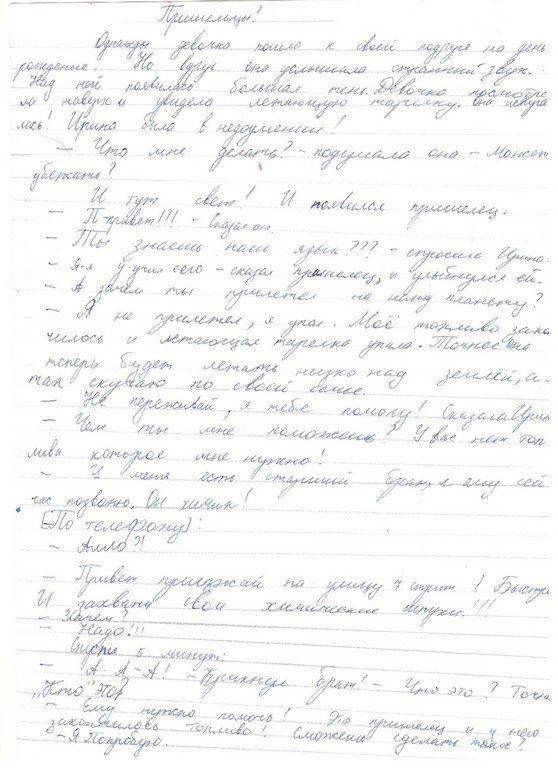 Пришельцы!
Однажды девочка пошла к своей подруге на день
рождение. Но вдруг она услышала странный звук.
Над ней появилась большая тень. Девочка посмотре
ла наверх и увидела летающую тарелку. Она испуга
лась! Ирина была в недоумении!
– Что мне делать? – подумала она – Может
убежать?
И тут свет! И появился пришелец.
– П-привет!!! – Сказал он.
– Ты знаешь наш язык??? – спросила Ирина.
– Я-я у-учил его – сказал пришелец, и улыбнулся ей.
– А зачем ты прилетел на нашу планету?
– Я не прилетел, я упал. Моё топливо зако
чилось и летающая тарелка упала. Точнее она
теперь будет летать низко над землёй, а я
так скучаю по своей семье.
– Не переживай, я тебе помогу! Сказала Ирин
– Чем ты мне поможешь? У вас нет топ
лива которое мне нужно!
– У меня есть старший брат, я ему сей
час позвоню. Он химик!
[По телефону]:
– Алло?!
– Привет приезжай на улицу 7 стрит! Быстре
И захвати свои химические штуки.!!!
– Зачем?
– Надо!!!
Спустя 5 минут:
– А-А-А! – Крикнул брат! – Что это? Точн
„Кто" это?
– Ему нужно помочь! Это пришелец и у него
закончилось топливо! Сможешь сделать такое?
– Я Попробую.